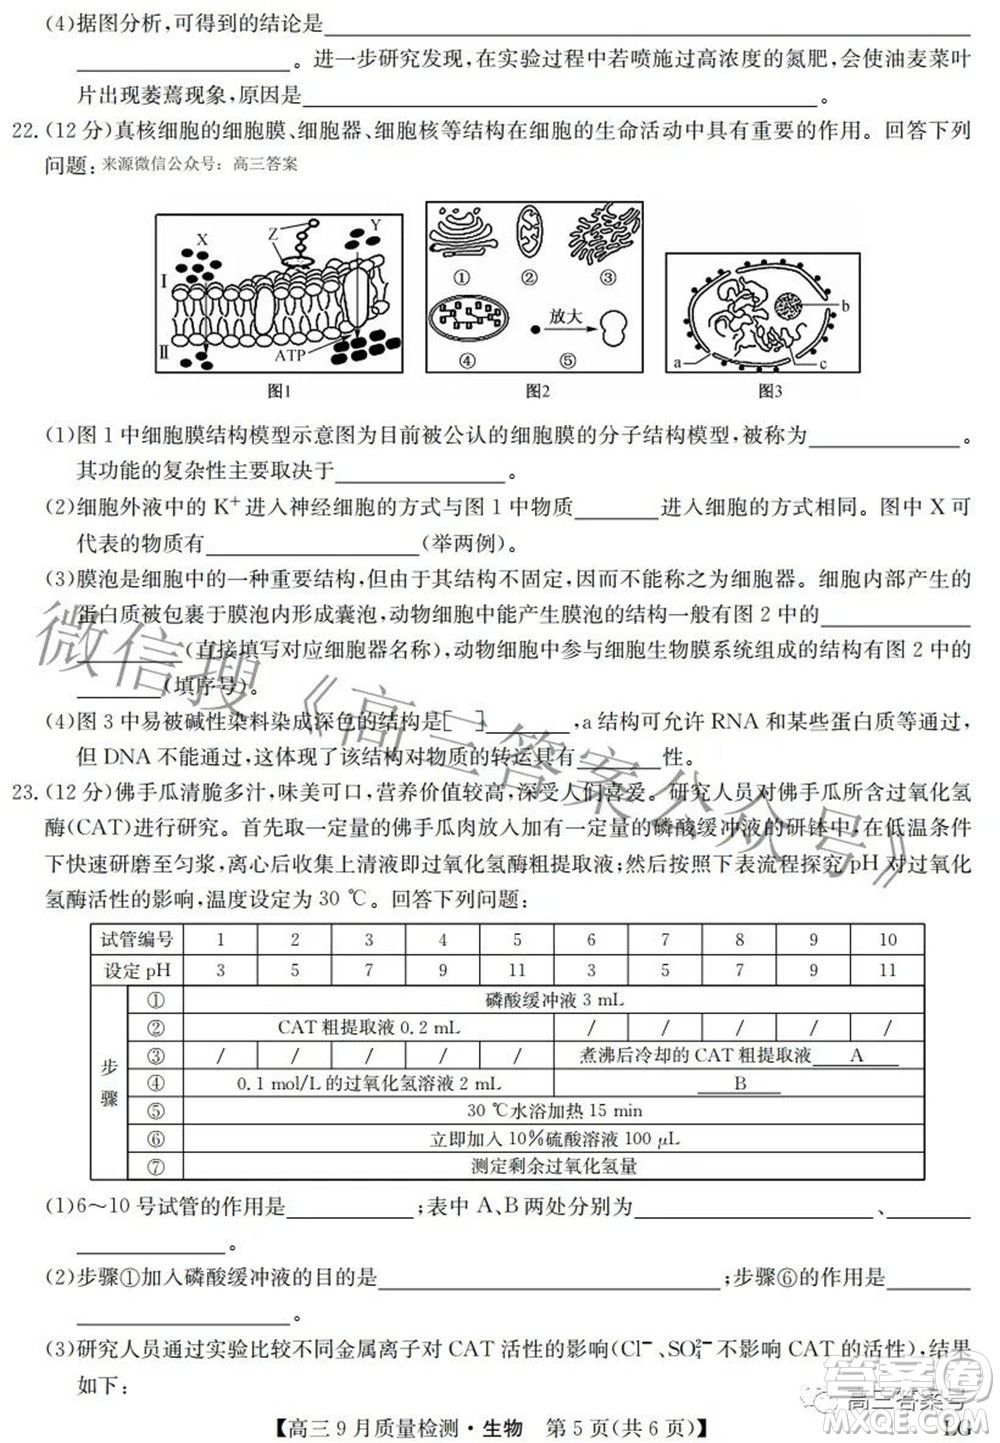 (4)据图分析,可得到的结论是
。进一步研究发现,在实验过程中若喷施过高浓度的氮肥,会使油麦菜叶
片出现萎蔫现象,原因是 。
22.(12分)真核细胞的细胞膜、细胞器、细胞核等结构在细胞的生命活动中具有重要的作用。回答下列
问题: 来源微信公众号：高三答案
X Z Y Ⅰ Ⅱ ATP 图1
① ② ③ ④ 放大 ⑤ 图2
a b c 图3
(1)图1中细胞膜结构模型示意图为目前被公认的细胞膜的分子结构模型,被称为 。
其功能的复杂性主要取决于 。
(2)细胞外液中的K⁺进入神经细胞的方式与图1中物质 进入细胞的方式相同。图中X可
代表的物质有 (举两例)。
(3)膜泡是细胞中的一种重要结构,但由于其结构不固定,因而不能称之为细胞器。细胞内部产生的
蛋白质被包裹于膜泡内形成囊泡,动物细胞中能产生膜泡的结构一般有图2中的
(直接填写对应细胞器名称),动物细胞中参与细胞生物膜系统组成的结构有图2中的
(填序号)。
(4)图3中易被碱性染料染成深色的结构是[ ] ,a结构可允许RNA和某些蛋白质等通过,
但DNA不能通过,这体现了该结构对物质的转运具有 性。
23.(12分)佛手瓜清脆多汁,味美可口,营养价值较高,深受人们喜爱。研究人员对佛手瓜所含过氧化氢
酶(CAT)进行研究。首先取一定量的佛手瓜肉放入加有一定量的磷酸缓冲液的研钵中,在低温条件
下快速研磨至匀浆,离心后收集上清液即过氧化氢酶粗提取液;然后按照下表流程探究pH对过氧化
氢酶活性的影响,温度设定为30 ℃。回答下列问题:
试管编号 1 2 3 4 5 6 7 8 9 10
设定pH 3 5 7 9 11 3 5 7 9 11
步骤 ① 磷酸缓冲液3 mL
② CAT粗提取液0.2 mL / / / / /
③ / / / / / 煮沸后冷却的CAT粗提取液 A
④ 0.1 mol/L的过氧化氢溶液2 mL B
⑤ 30 ℃水浴加热15 min
⑥ 立即加入10%硫酸溶液100 μL
⑦ 测定剩余过氧化氢量
(1)6～10号试管的作用是 ;表中A、B两处分别为 、
。
(2)步骤①加入磷酸缓冲液的目的是 ;步骤⑥的作用是
。
(3)研究人员通过实验比较不同金属离子对CAT活性的影响(Cl⁻、SO₄²⁻不影响CAT的活性),结果
如下:
【高三9月质量检测·生物 第5页(共6页)】 LG
微信搜《高三答案公众号》
高三答案号
答案圈
MXQE.COM